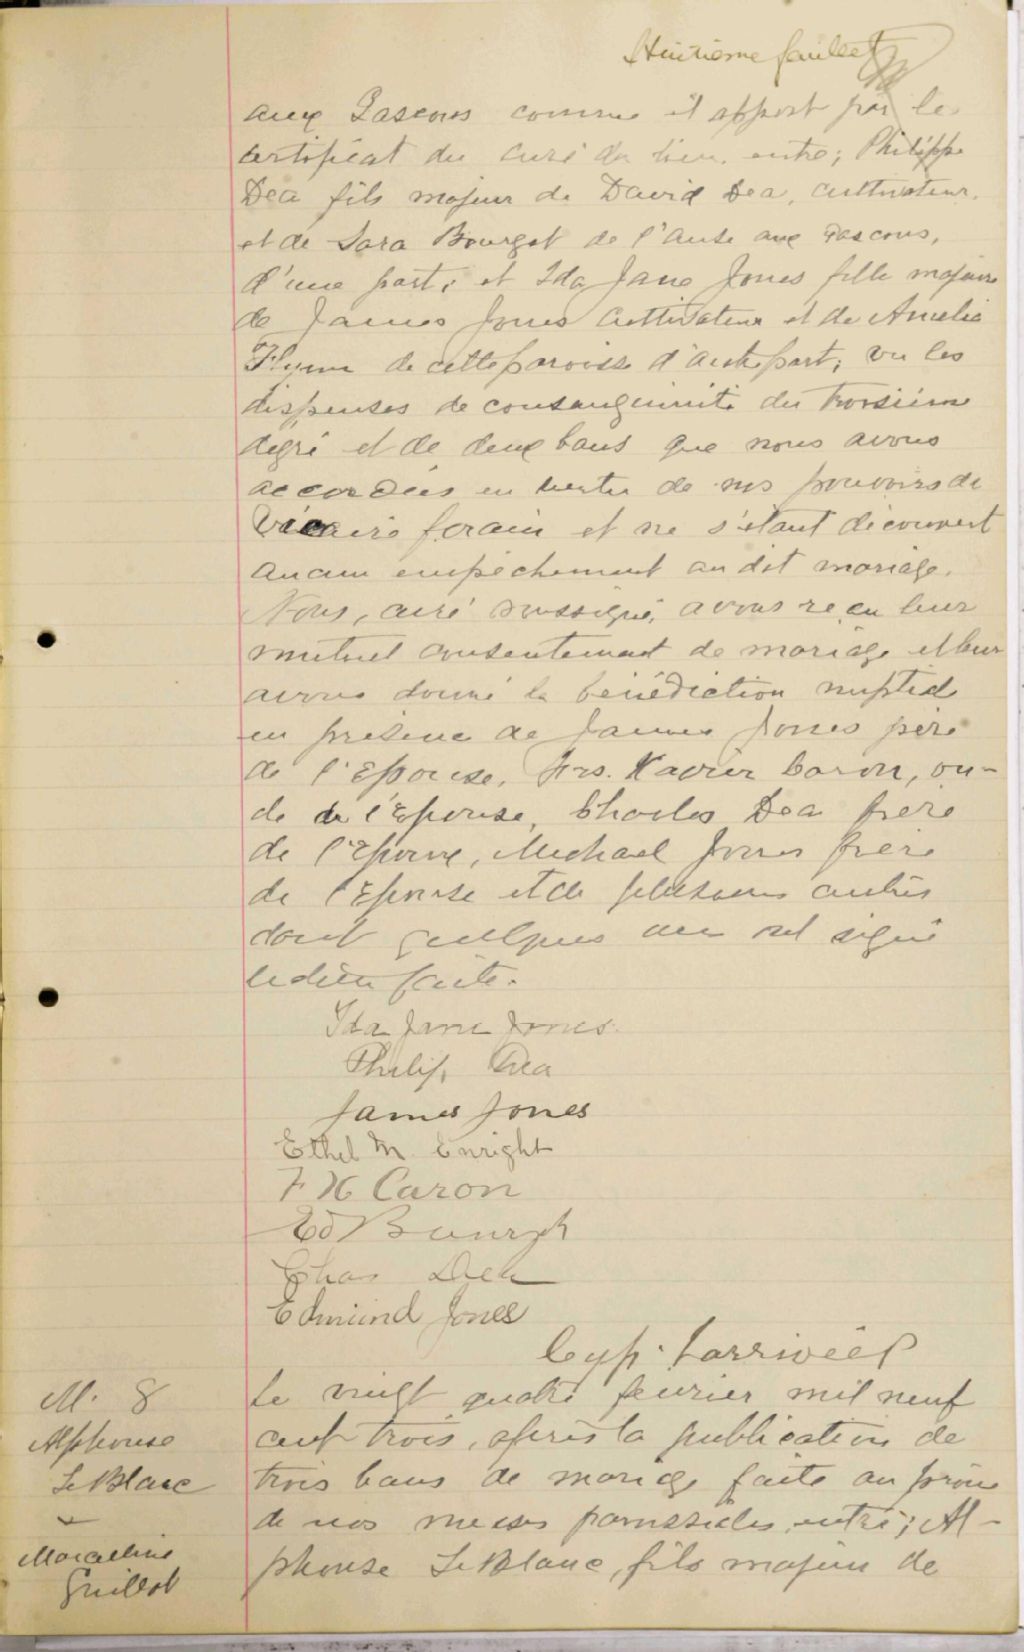 Huitième feuillet
aux Gascons comme il appert par le
certificat du curé du lieu entre; Philippe
Dea fils majeur de David Dea, cultivateur,
et de Sara Bourget de l'Anse aux Gascons,
d'une part; et Ida Jane Jones fille majeure
de James Jones cultivateur et de Amelia
Flynn de cette paroisse d'autre part; vu les
dispenses de consanguinité du troisième
degré et de deux bans que nous avons
accordées en vertu de nos pouvoirs de
Vicaire forain et ne s'étant découvert
aucun empêchement au dit mariage.
Nous, curé soussigné, avons reçu leur
mutuel consentement de mariage et leur
avons donné la bénédiction nuptial
en présence de James Jones père
de l'Epouse, Frs. Xavier Caron, on-
cle de l'Epouse, Charles Dea frère
de l'Epoux, Michael Jones frère
de l'Epouse et de plusieurs autres
dont quelques uns ont signé
lecture faite.
Ida Jane Jones.
Philip Dea
James Jones
Ethel M. Enright
F X Caron
Ed Bourget
Chas Dea
Edmund Jones
Cyp. Larrivée P
M. 8
Alphonse
LeBlanc
Marcelline
Guillot
Le vingt quatre fevrier mil neuf
cent trois, après la publication de
trois bans de mariage faite au prône
de nos messes paroissiales, entre; Al-
phonse LeBlanc, fils majeur de